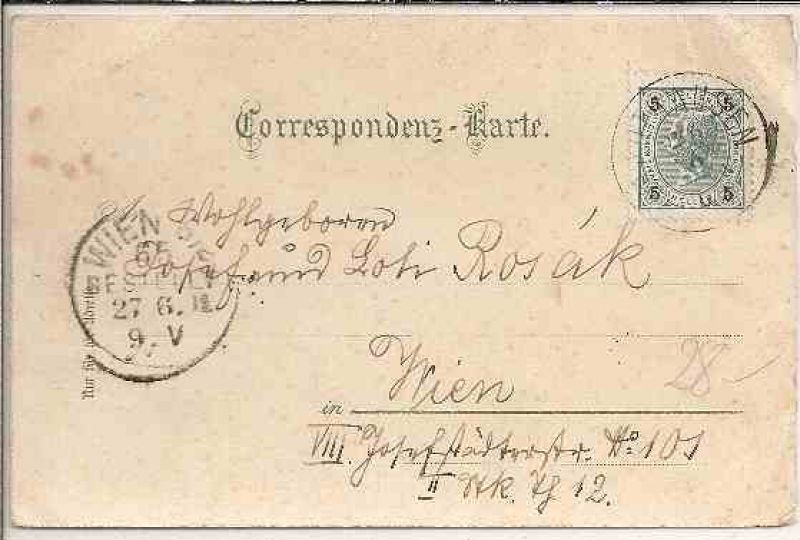 Correspondenz-Karte.
5 5
5 5
Wohlgeboren
Josef und Loti Rosák
WIEN
BESTELLT
27 6.
9. V
Nur für die Adresse
in Wien
28 -
VIII. Josefstädterstr. No 101
II Stk. Th 12.